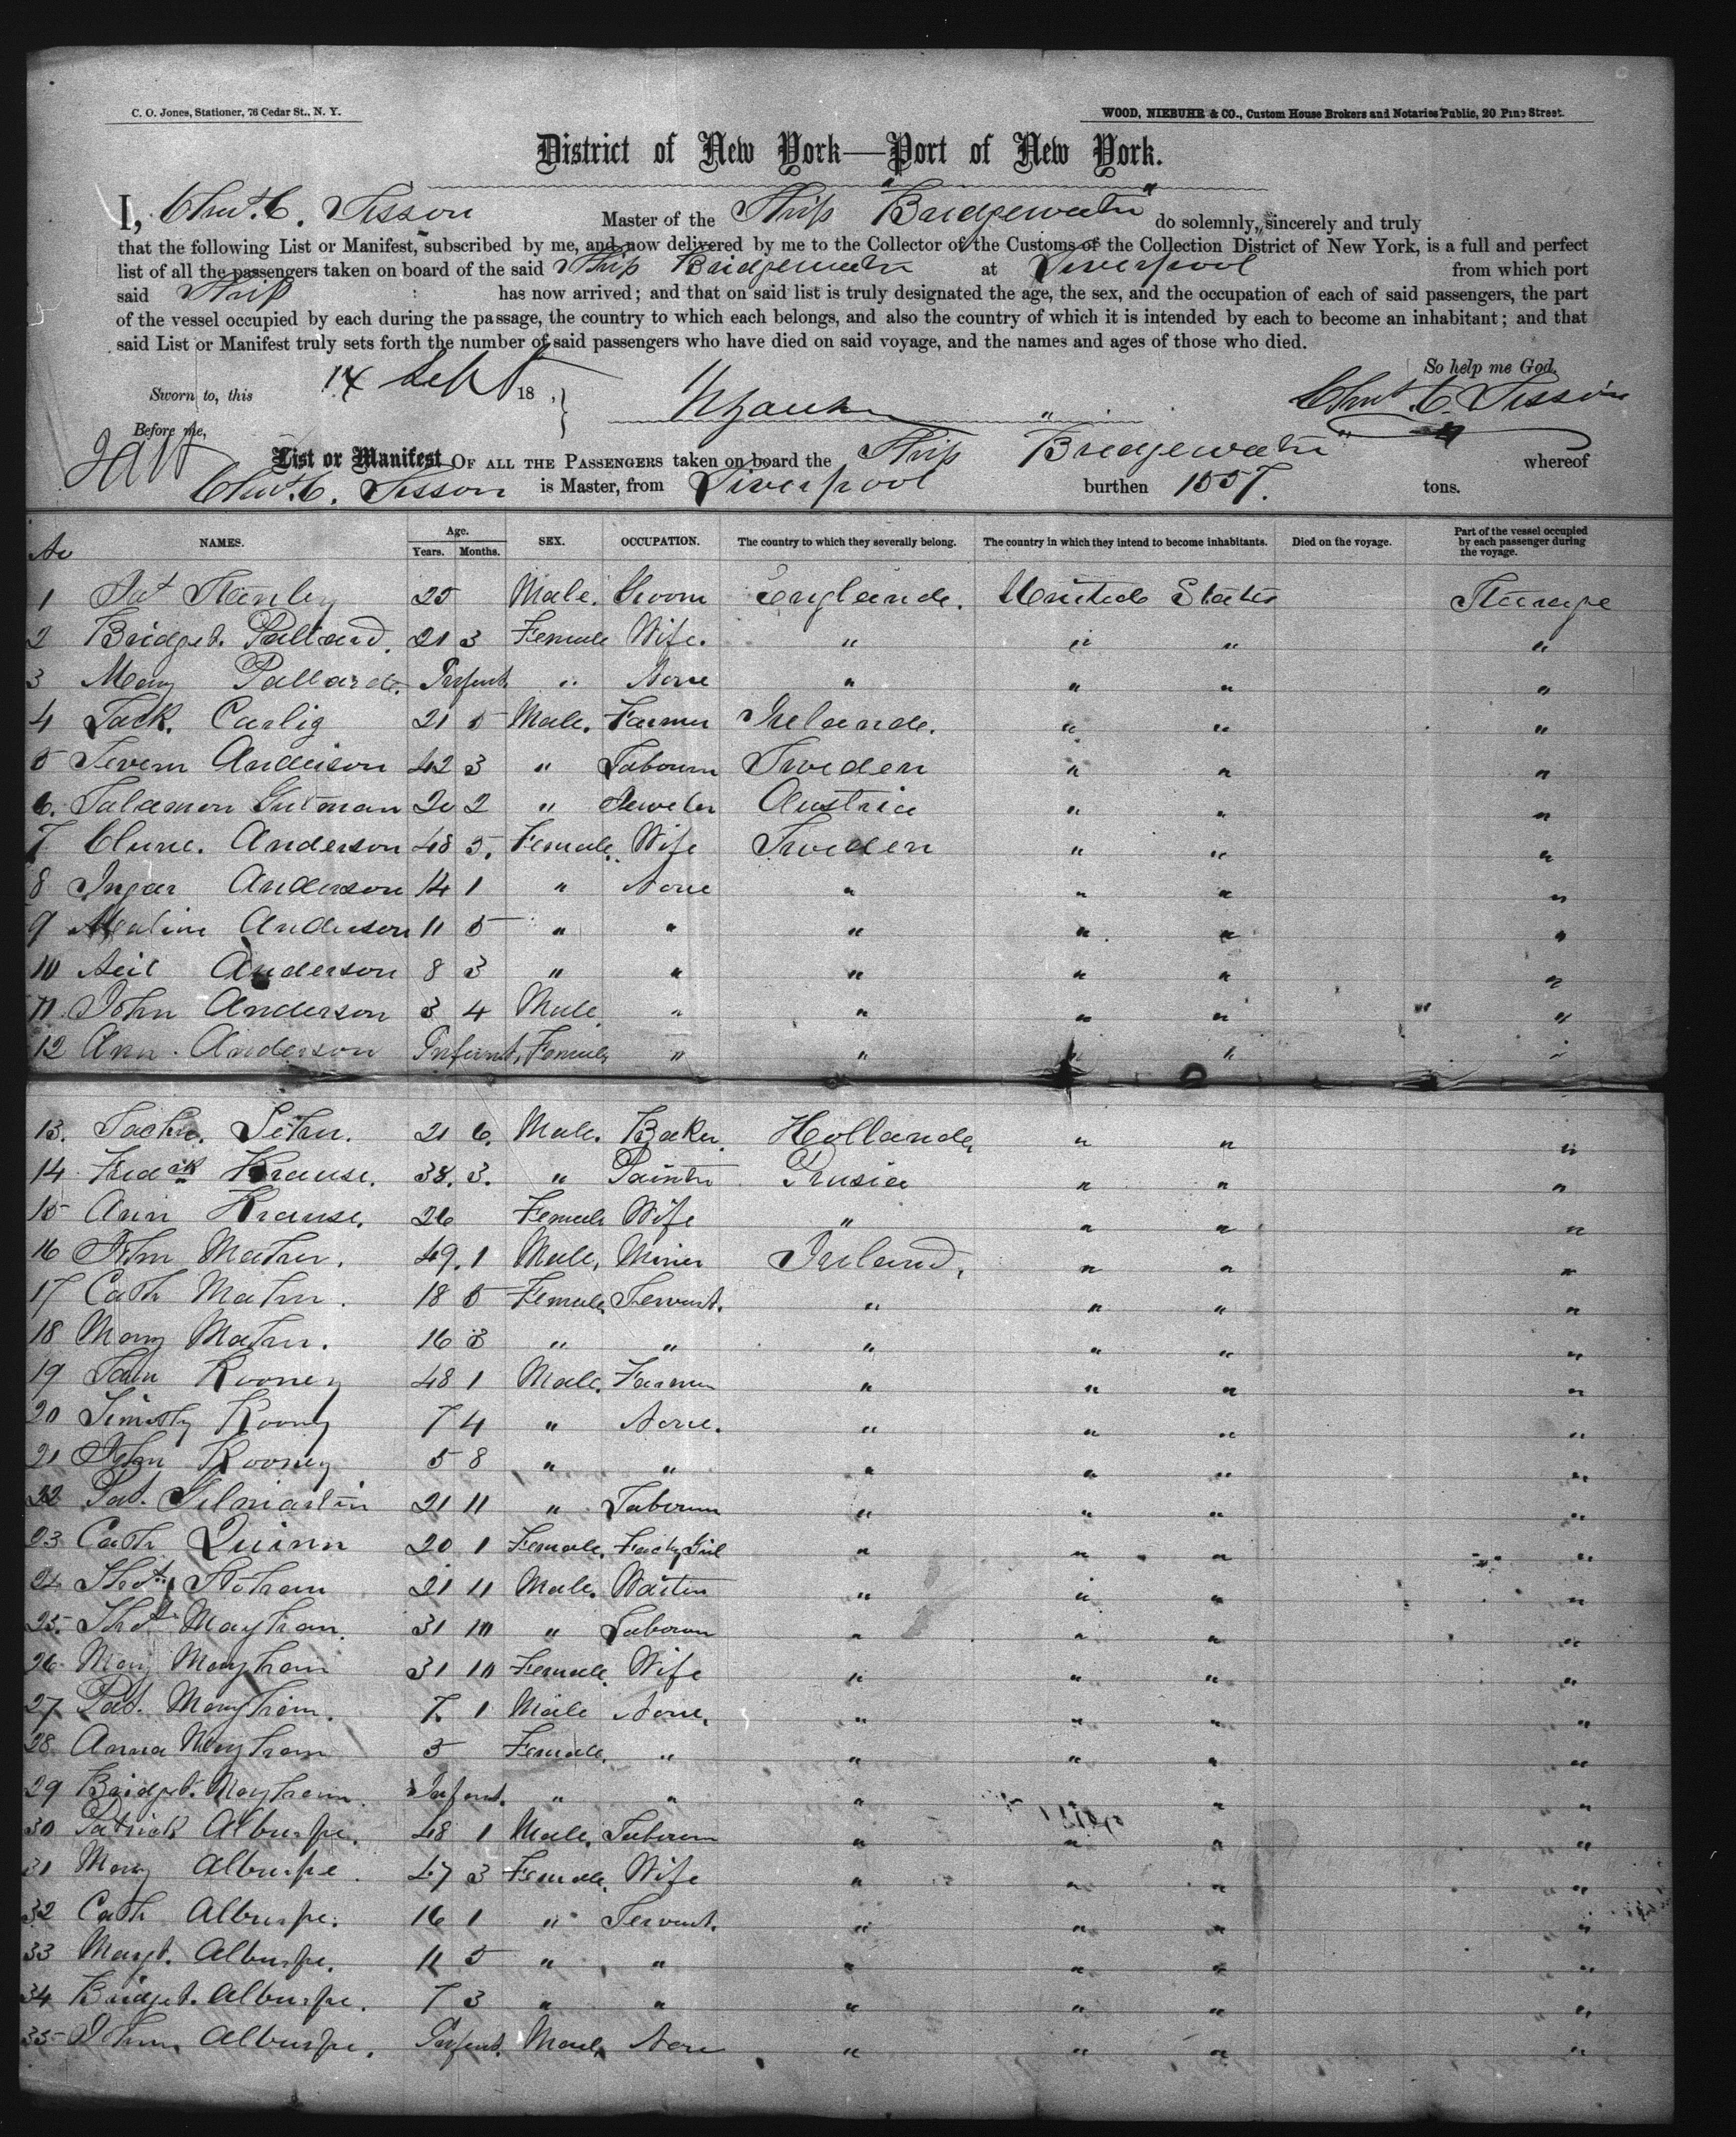 C. O. Jones, Stationer, 76 Cedar St., N. Y.
WOOD, NIEBUHR & CO., Custom House Brokers and Notaries Public, 20 Pine Street.
District of New York—Port of New York.
I, C. Sisson Master of the Ship "Bridgewater" do solemnly, sincerely and truly
that the following List or Manifest, subscribed by me, and now delivered by me to the Collector of the Customs of the Collection District of New York, is a full and perfect
list of all the passengers taken on board of the said Ship Bridgewater at Liverpool from which port
said Ship has now arrived; and that on said list is truly designated the age, the sex, and the occupation of each of said passengers, the part
of the vessel occupied by each during the passage, the country to which each belongs, and also the country of which it is intended by each to become an inhabitant; and that
said List or Manifest truly sets forth the number of said passengers who have died on said voyage, and the names and ages of those who died.
So help me God.
Sworn to, this 14 Sept 18
C. Sisson
Before me,
List or Manifest OF ALL THE PASSENGERS taken on board the Ship Bridgewater" whereof
C. Sisson is Master, from Liverpool burthen 1557. tons.
No NAMES. Age. Years. Months. SEX. OCCUPATION. The country to which they severally belong. The country in which they intend to become inhabitants. Died on the voyage. Part of the vessel occupied by each passenger during the voyage.
1 Pat Stanley 25 Male. Groom England. United States Steerage
2 Bridget. Pallard. 21 3 Female Wife. " " " "
3 Mary Pallard. Infant " None " " " "
4 Jack. Carlig 21 5 Male. Farmer Ireland. " " "
5 Severn Anderson 42 3 " Labourer Sweden " " "
6. Salamon Gutman 20 2 " Jeweler Austria " " "
7 Anderson 48 5. Female. Wife Sweden " " "
8 Ingar Anderson 14 1 " None " " " "
9 Anderson 11 5 " " " " " "
10 Neil Anderson 8 3 " " " " " "
11 John Anderson 3 4 Male " " " " "
12 Ann. Anderson Infant, Female " " " " "
13. 21 6. Male. Baker Holland, " " "
14 Fredck Krause. 38. 3. " Painter Prusia " " "
15 Ann Krause. 26 Female Wife " " " "
16 John Maher. 49. 1 Male, Miner Ireland, " " "
17 Cath Maher. 18 5 Female Servant. " " " "
18 Mary Maher. 16 3 " " " " " "
19 Rooney 48 1 Male. Farmer " " " "
20 Timothy Rooney 7 4 " None. " " " "
21 John Rooney 5 8 " " " " " "
22 Pat. Gilmartin 21 11 " Labourer " " " "
23 Cath Quinn 20 1 Female. Facty Girl " " " "
24 Thos. 21 11 Male. Waiter " " " "
25. Thos. Mayhan. 31 10 " Labourer " " " "
26 Mary Mayhan 31 10 Female. Wife " " " "
27 Pat. Mayhan. 7. 1 Male None. " " " "
28 Anna Mayhan 5 Female. " " " " "
29 Bridget. Mayhan Infant. " " " " " "
30 Patrick Alburspe. 48 1 Male, Labourer " " " "
31 Mary Alburspe 47 3 Female. Wife " " " "
32 Cath Alburspe. 16 1 " Servant. " " " "
33 Margt. Alburspe. 11 5 " " " " " "
34 Bridget. Alburspe. 7 3 " " " " " "
35 John Alburspe. Infant. Male, None " " " "